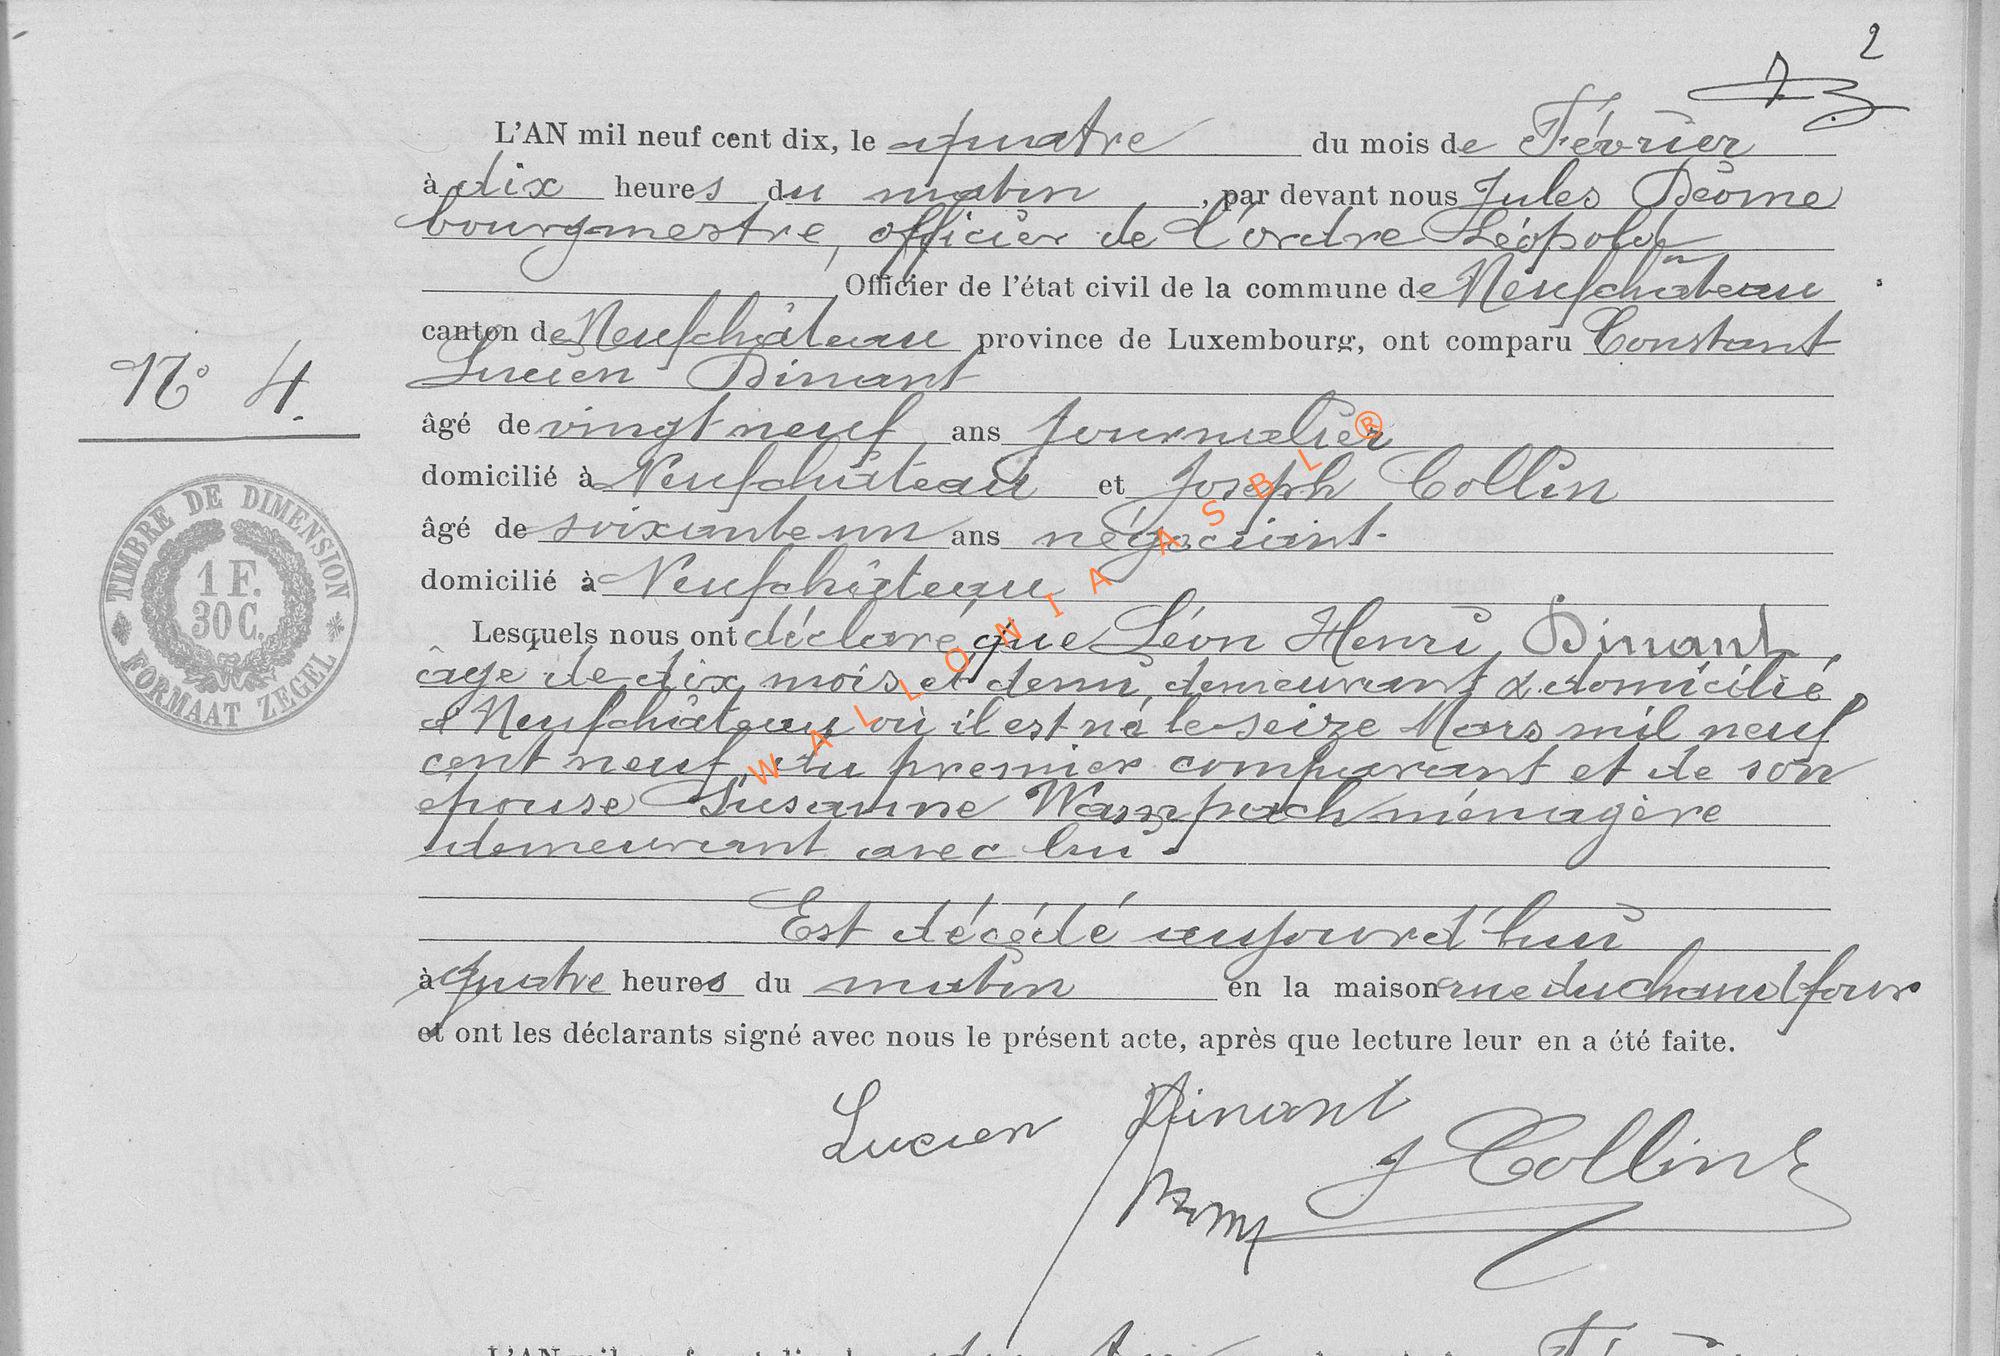 2
L'AN mil neuf cent dix, le quatre du mois de Février
à dix heures du matin, par devant nous Jules Déome
bourgmestre, officier de l'ordre Léopold
Officier de l'état civil de la commune de Neufchâteau
canton de Neufchâteau province de Luxembourg, ont comparu Constant
Lucien Dinant
N° 4.
âgé de vingt neuf ans journalier
domicilié à Neufchâteau et Joseph Collin
âgé de soixante un ans négociant.
domicilié à Neufchâteau
TIMBRE DE DIMENSION
1 F.
30 C.
FORMAAT ZEGEL
WALLONIA ASBL ®
Lesquels nous ont déclaré que Léon Henri Dinant,
âge de dix mois et demi, demeurant & domicilié
à Neufchâteau où il est né le seize Mars mil neuf
cent neuf, du premier comparant et de son
épouse Susanne ménagère
demeurant avec lui.
Est décédé aujourd'hui
à quatre heures du matin en la maison rue du chaud four
et ont les déclarants signé avec nous le présent acte, après que lecture leur en a été faite.
Lucien Dinant
J Collin
L'AN mil neuf cent dix, le du mois de Février